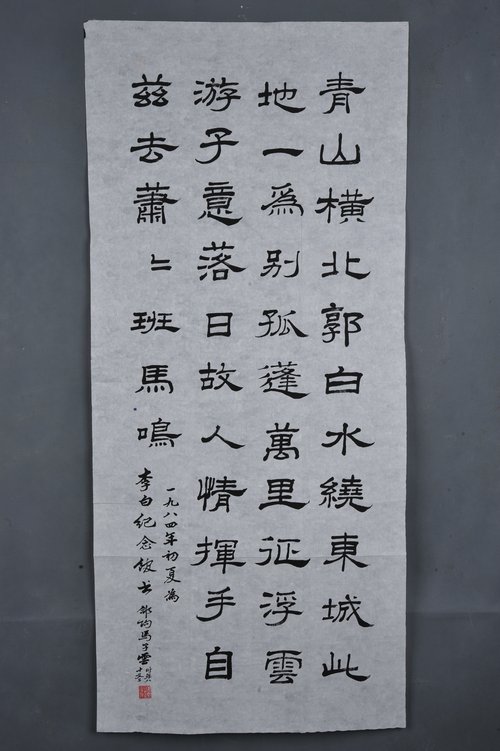 青山橫北郭白水繞東城此
地一爲別孤蓬萬里征浮雲
游子意落日故人情揮手自
茲去蕭〻班馬鳴
一九八四年初夏為
李白纪念館书 郃陽馬子雲